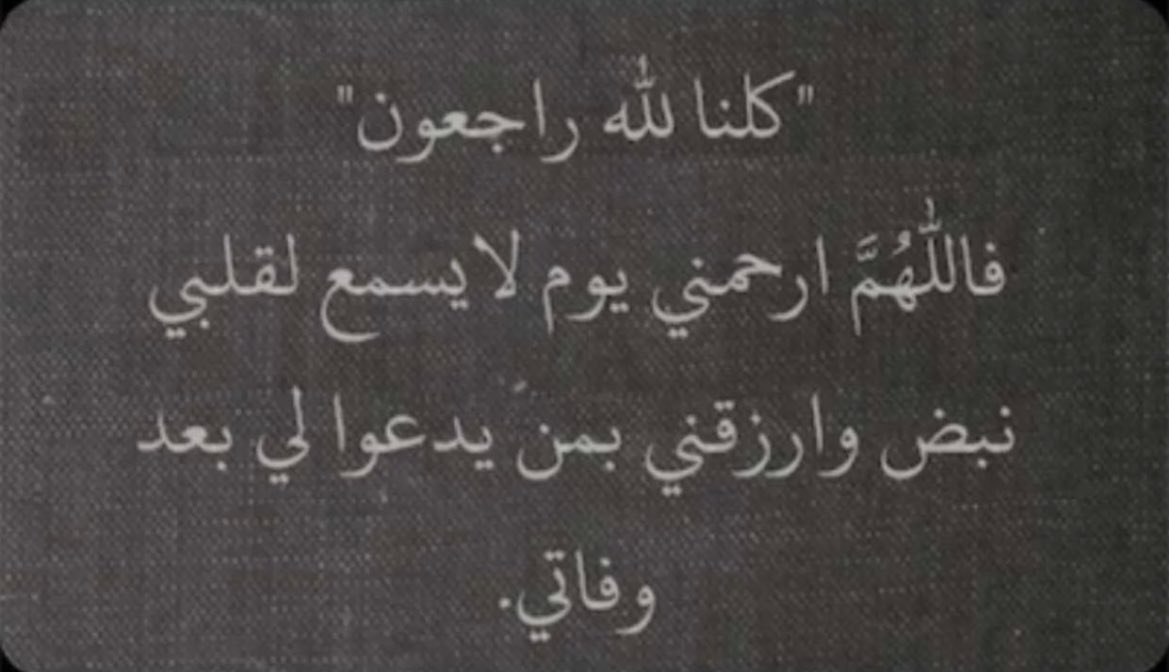 "كلنا لله راجعون"
فاللّٰهُمَّ ارحمني يوم لا يسمع لقلبي
نبض وارزقني بمن يدعوا لي بعد
وفاتي.